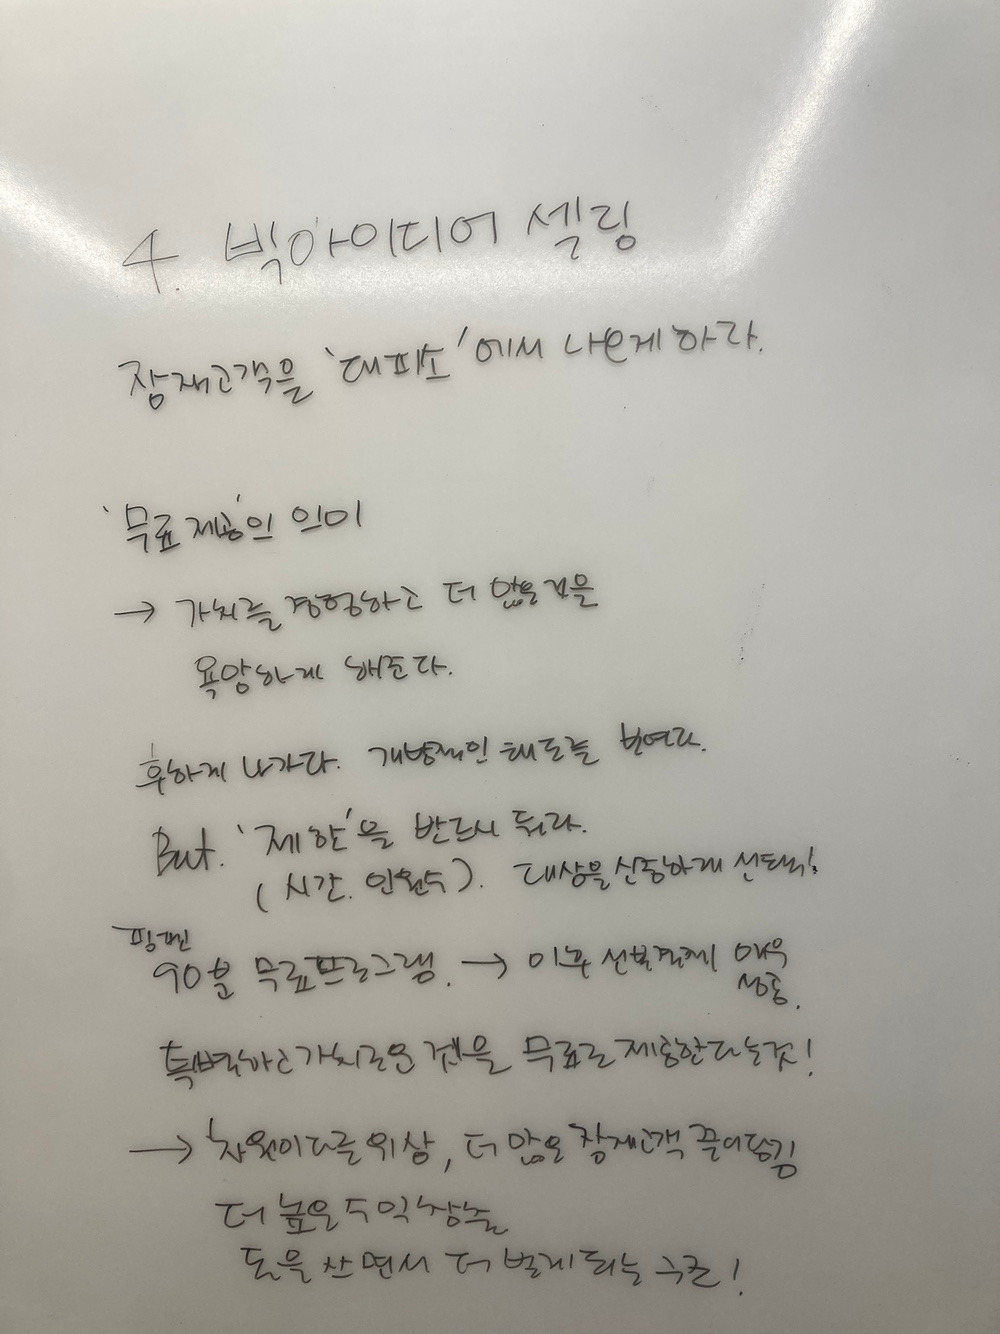 4. 빅아이디어 셀링
잠재고객을 '대피소'에서 나오게하라.
'무료제공'의 의미
→ 가치를 경험하고 더 많을 것을
욕망하게 해준다.
후하게 나가라. 개방적인 태도를 보여라.
But. '제한'을 반드시 둬라.
(시간. 인원수). 대상을 신중하게 선택!
90분 무료프로그램. → 이후 선불결제 매우
성공.
특별하고 가치로운 것을 무료로 제공한다는것!
→ 차원이 다를 위상, 더 많은 잠재고객 끌어당김
더 높은 수익창출
돈을 쓰면서 더 벌게되는 구조!